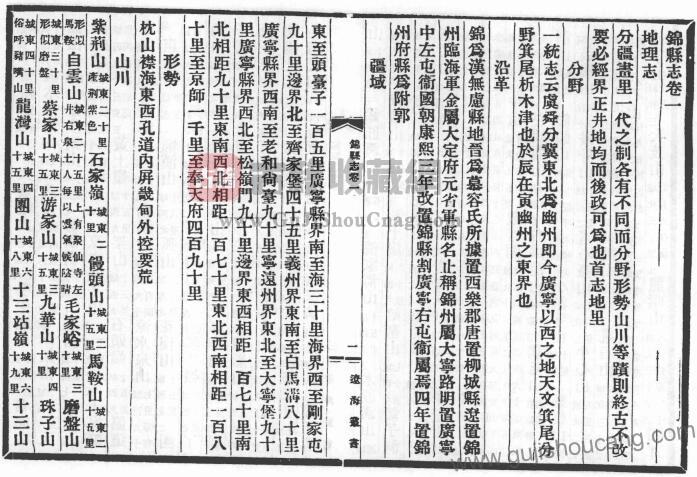 錦縣志卷一
地理志
分疆畫里一代之制各有不同而分野形勢山川等蹟則終古不改
要必經界正井地均而後政可爲也首志地里
分野
一統志云虞舜分冀東北爲幽州即今廣寧以西之地天文箕尾分
野箕尾析木津也於辰在寅幽州之東界也
沿革
錦縣爲漢無慮縣地晉爲慕容氏所據置西樂郡唐置柳城縣遼置錦
州臨海軍金屬大定府元省軍縣名止稱錦州屬大寧路明置廣寧
中左屯衞國朝康熙元年改置錦縣割廣寧右屯衞屬焉四年置錦
州府縣爲附郭
疆域
錦縣志卷一
一
遼海叢書
東至頭臺子一百五里廣寧縣界南至海三十里海界西至剛家屯
九十里邊界北至齊家堡四十五里義州界東南至白馬溝八十里
廣寧縣界西南至老和尚臺九十里寧遠州界東北至大寧堡九十
里廣寧縣界西北至松嶺門九十里邊界東西相距一百七十里南
北相距九十里東南西北相距一百七十里東北西南相距一百八
十里至京師一千里至奉天府四百九十里
形勢
枕山襟海東西孔道內屏畿甸外控要荒
山川
紫荆山城東二十里產荆紫色石家嶺城東二十里饅頭山城東二十五里馬鞍山城東二十五里
形似馬鞍白雲山城東二十五里上有聚仙寺左井右泉土人每以雲氣候陰晴毛家峪城東三十里磨盤山
城東三十里形似磨盤蔡家山城東三十三里游家山城東三十五里九華山城東四十里珠子山
城東四十里俗呼豬嘴山龍灣山城東四十五里團山城東六十八里十三站嶺城東六十九里十三山
www.guishoucang.com